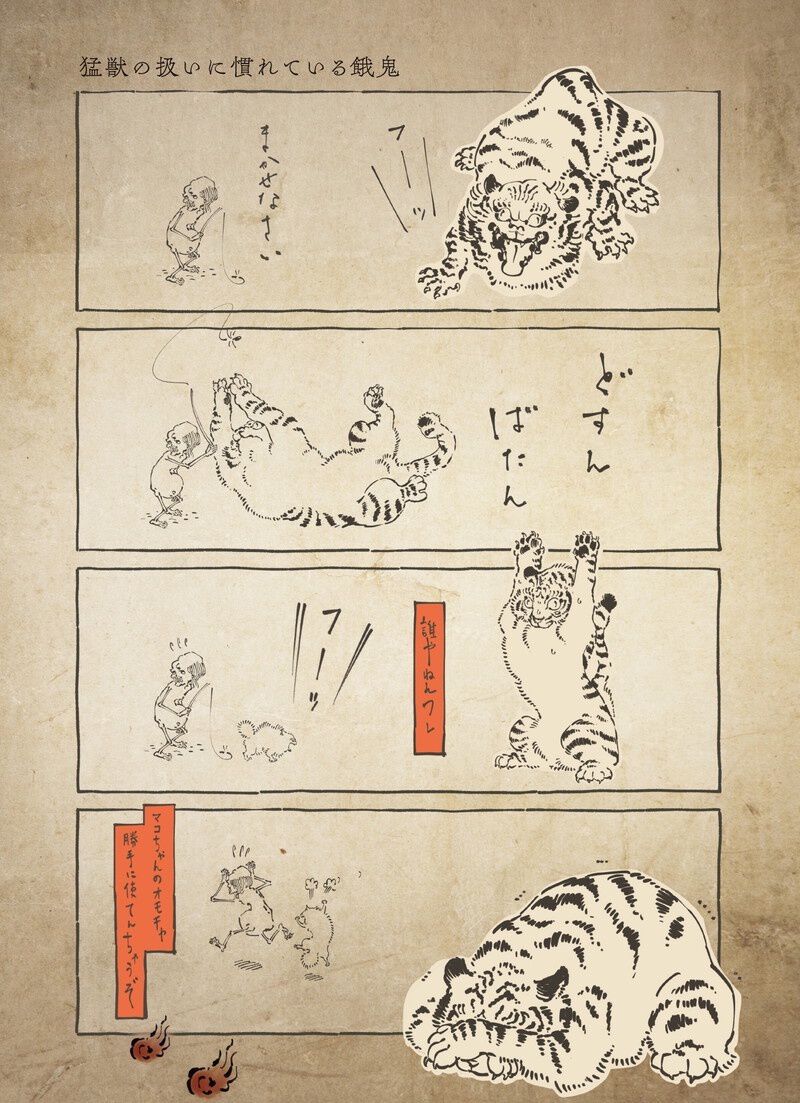 猛獣の扱いに慣れている餓鬼
フーッ
まかせなさい
どすん
ばたん
誰やねんワレ
フーッ
マコちゃんのオモチャ
勝手に使てんちゃうぞ